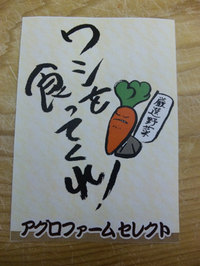 ワシを
食ってくれ!
厳選野菜
アグロファームセレクト